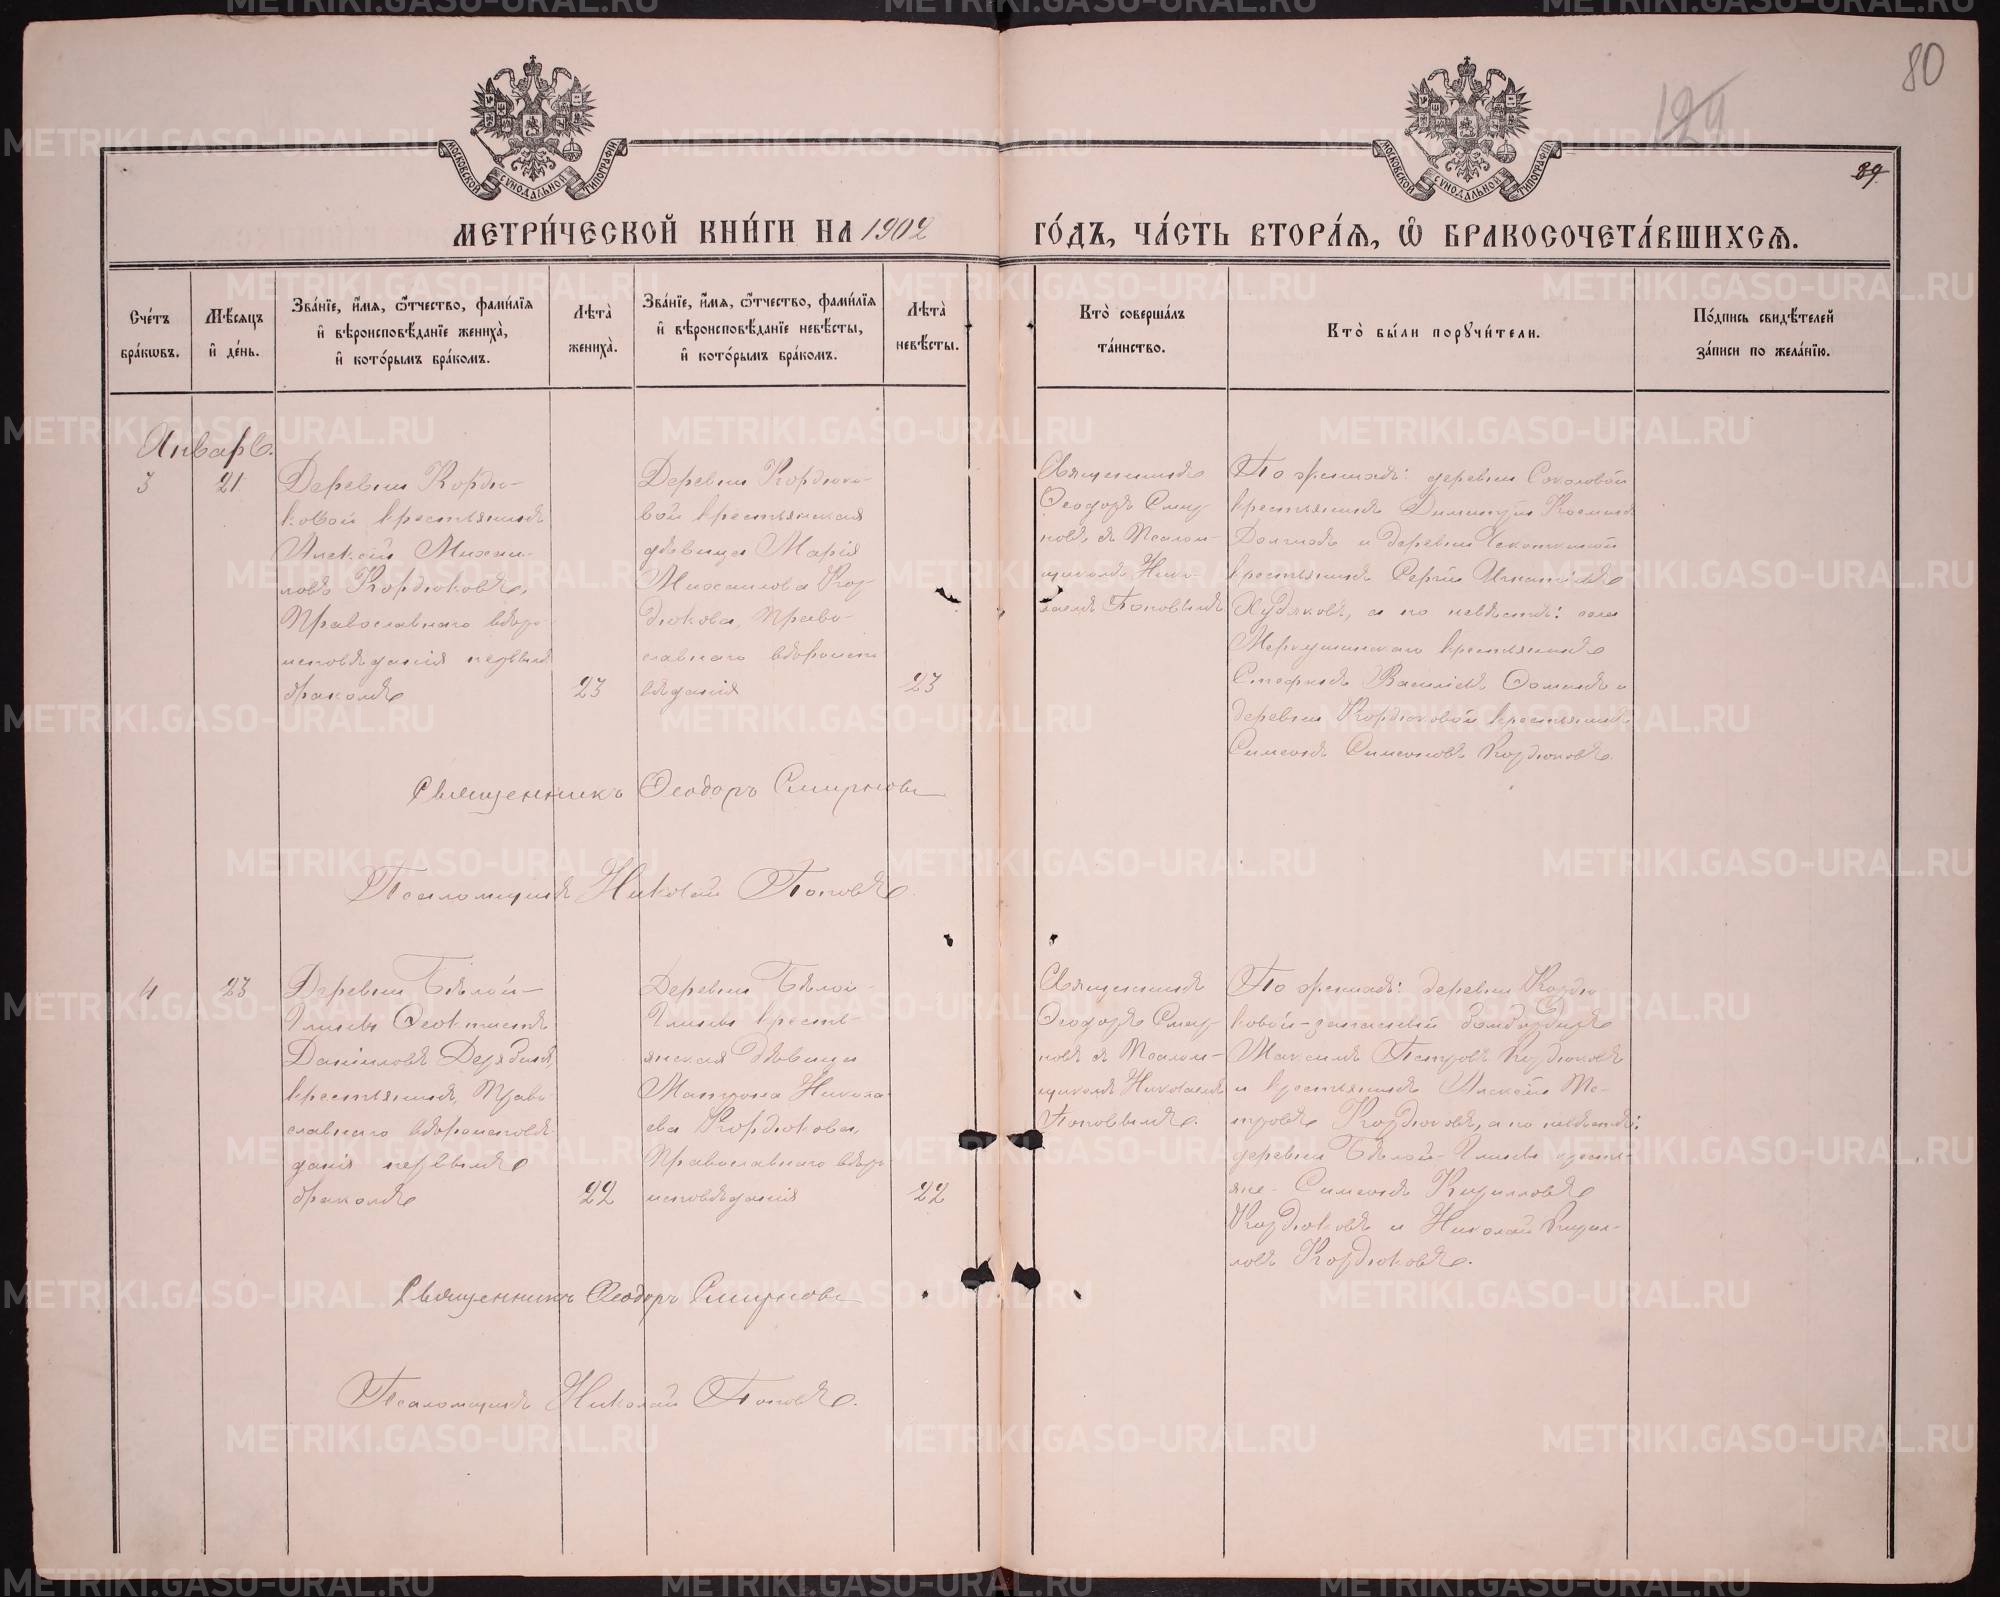 80
124
89.
МОСКОВСКОЙ СѴНОДАЛЬНОЙ ТИПОГРАФІИ
МОСКОВСКОЙ СѴНОДАЛЬНОЙ ТИПОГРАФІИ
МЕТРИ́ЧЕСКОЙ КНИ́ГИ НА 1902 ГО́ДЪ, ЧА́СТЬ ВТОРА́Ѧ, Ѡ҆ БРАКОСОЧЕТА́ВШИХСѦ.
Сче́тъ бра́кѡвъ.
Мѣ́сѧцъ и҆ де́нь.
Зва́нїе, и҆́мѧ, ѻ҆́тчество, фами́лїѧ
и҆ вѣроисповѣ́данїе жениха̀,
и҆ кото́рымъ бра́комъ.
Лѣ́та̀ жениха̀.
Зва́нїе, и҆́мѧ, ѻ҆́тчество, фами́лїѧ
и҆ вѣроисповѣ́данїе невѣ́сты,
и҆ кото́рымъ бра́комъ.
Лѣ́та̀ невѣ́сты.
Кто̀ соверша́лъ та́инство.
Кто̀ бы́ли порꙋчи́тели.
По́дпись свидѣ́телей за́писи по жела́нїю.
Январь.
3
21
Деревни Кордю-
ковой крестьянинъ
Алексѣй Михаи-
ловъ Кордюковъ,
Православнаго вѣро-
исповѣданія первымъ
бракомъ
23
Деревни Кордюко-
вой крестьянская
дѣвица Марія
Михаилова Кор-
дюкова, Право-
славнаго вѣроиспо
вѣданія
23
Священникъ
Ѳеодоръ Смир
новъ съ Псалом-
щикомъ Нико-
лаемъ Поповымъ
По женихѣ: деревни Соколовой
крестьянинъ Димитрій Косминъ
и деревни
крестьянинъ Сергій Игнатіевъ
Худяковъ, а по невѣстѣ: села
Меркушинскаго крестьянинъ
Стефанъ Василіевъ Ѳоминъ и
деревни Кордюковой крестьянинъ
Симеонъ Симеоновъ Кордюковъ.
Священникъ Ѳеодоръ Смирновъ
Псаломщикъ Николай Поповъ.
4
23
Деревни Бѣлой-
Глины Ѳеоктистъ
Даніиловъ Дерябинъ,
крестьянинъ, Право
славнаго вѣроисповѣ
данія первымъ
бракомъ
22
Деревни Бѣлой-
Глины кресть-
янская дѣвица
Матрона Никола-
ева Кордюкова,
Православнаго вѣро
исповѣданія
22
Священникъ
Ѳеодоръ Смир
новъ съ Псалом-
щикомъ Николаемъ
Поповымъ.
По женихѣ: деревни Кордю-
ковой-запасный бомбардиръ
Максимъ Петровъ Кордюковъ
и крестьянинъ Алексѣй Пе-
тровъ Кордюковъ, а по невѣстѣ:
деревни Бѣлой-Глины кресть-
яне- Симеонъ Кирилловъ
Кордюковъ и Николай Кирил-
ловъ Кордюковъ.
Священникъ Ѳеодоръ Смирновъ
Псаломщикъ Николай Поповъ.
METRIKI.GASO-URAL.RU